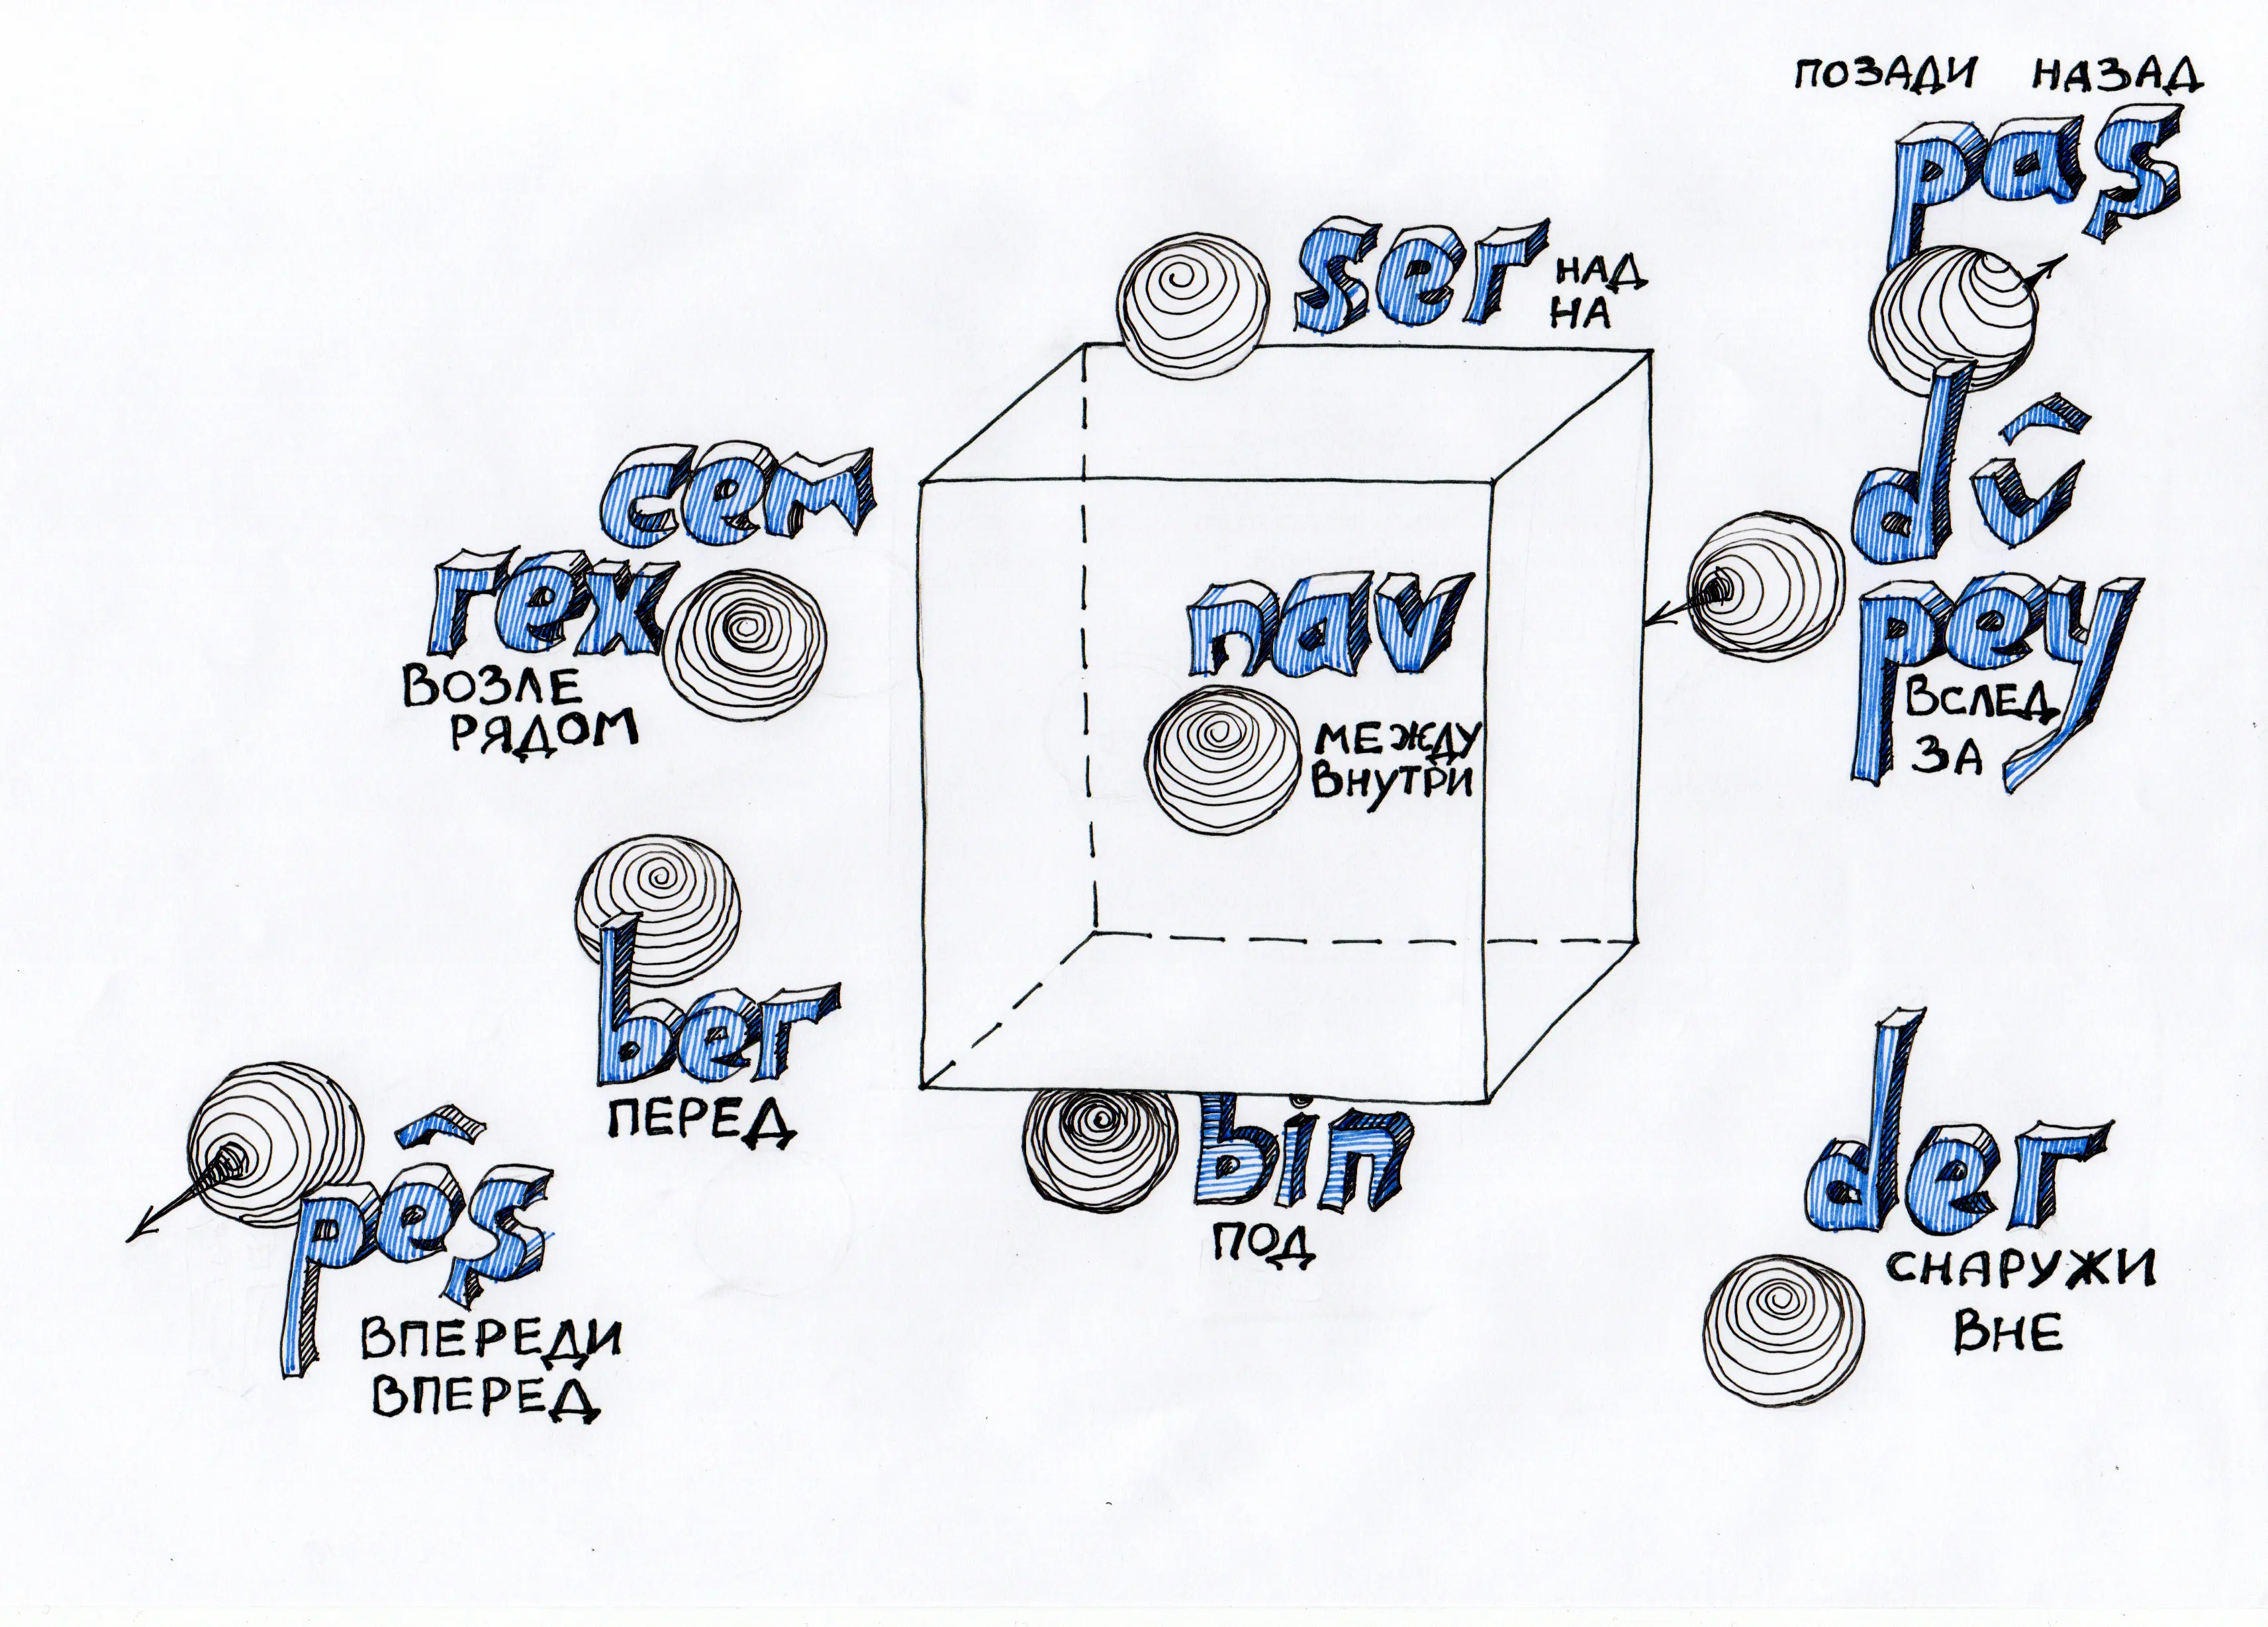 ПОЗАДИ НАЗАД
paş
ser
НАД
НА
cem
rex
ВОЗЛЕ
РЯДОМ
nav
МЕЖДУ
ВНУТРИ
dû
pey
ВСЛЕД
ЗА
ber
ПЕРЕД
pêş
ВПЕРЕДИ
ВПЕРЕД
bin
ПОД
der
СНАРУЖИ
ВНЕ